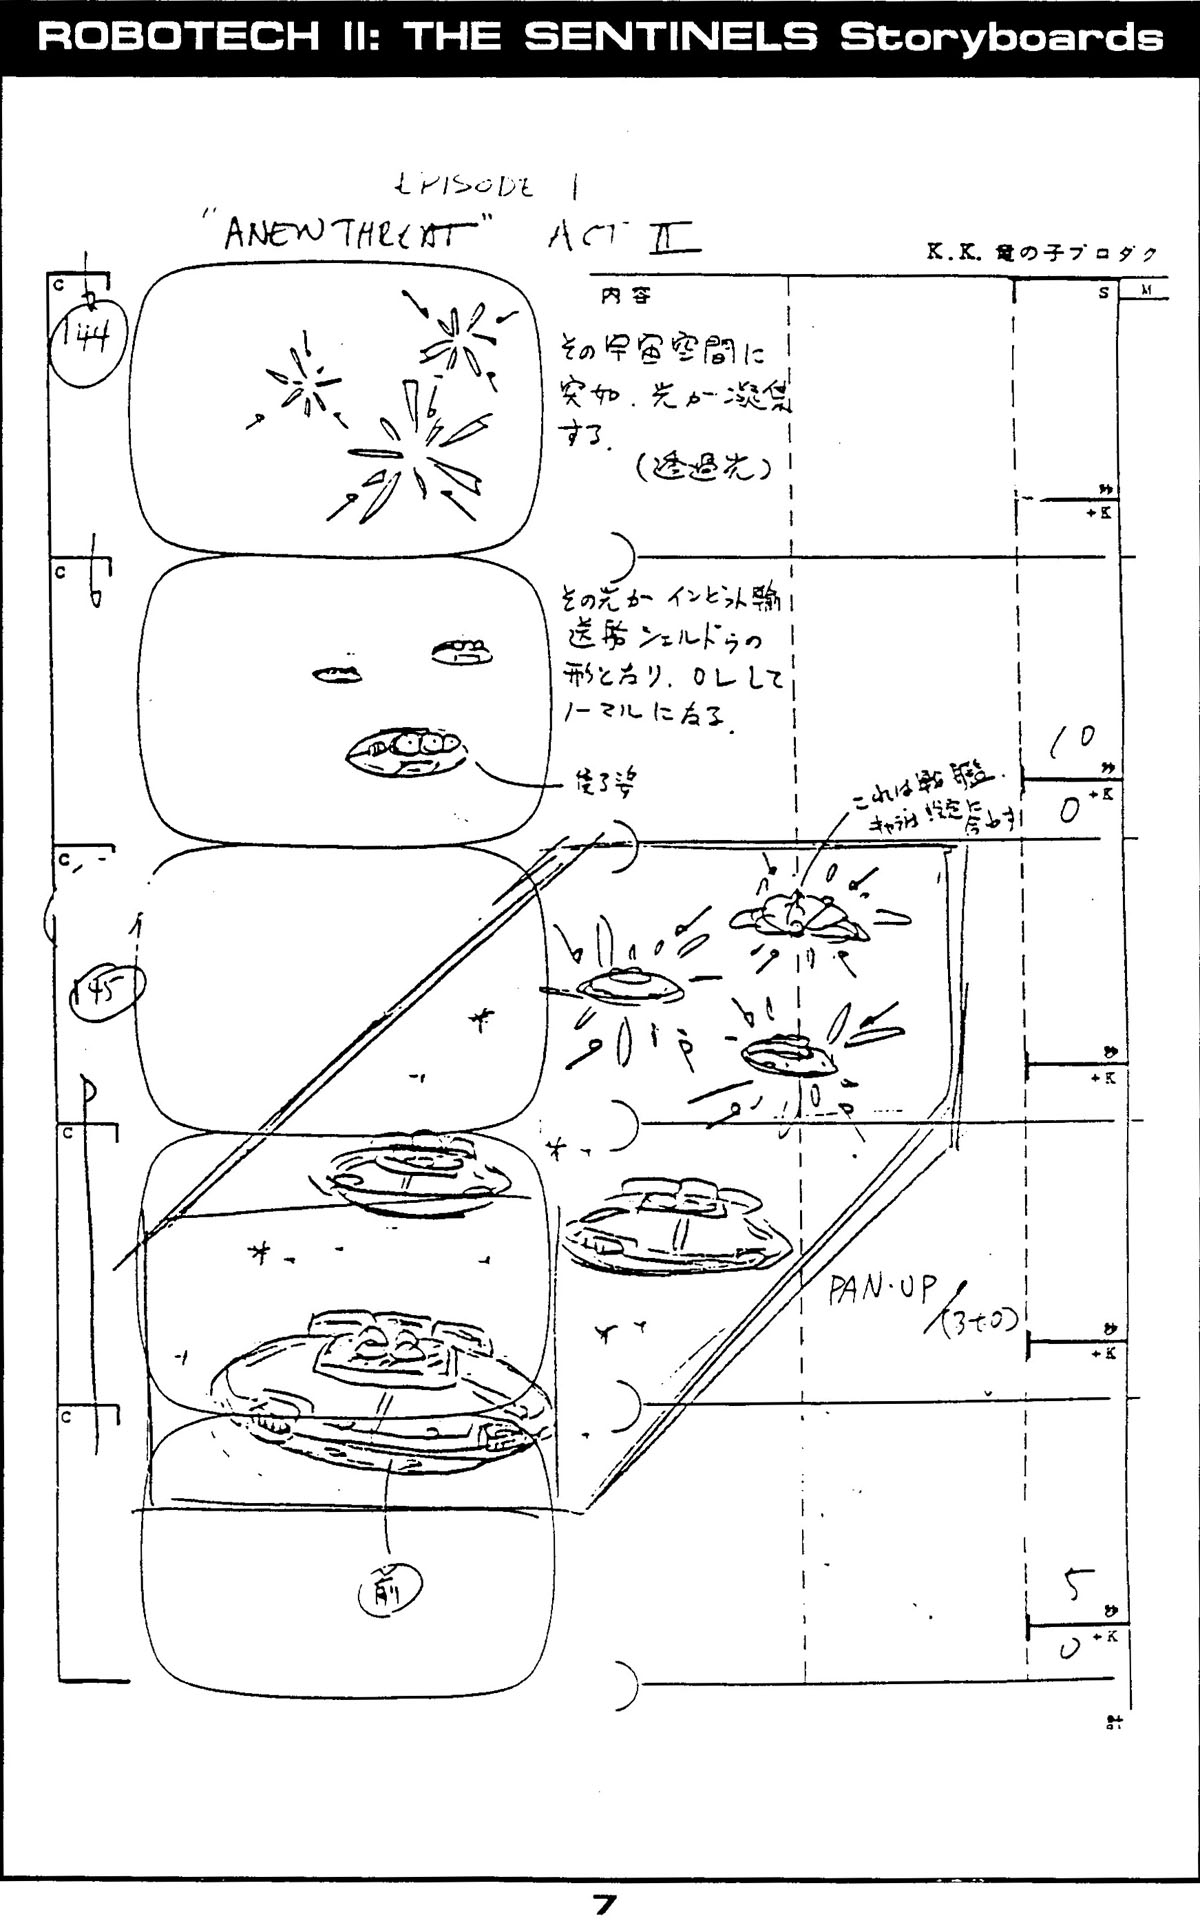 ROBOTECH II: THE SENTINELS Storyboards
EPISODE 1
"A NEW THREAT" ACT II
K.K. 竜の子プロダク
C
内容
S
M
144
その宇宙空間に
突如、光が凝集
する.
(透過光)
秒
+K
C
その光が インビット輸
送船 シェルドゥの
形となり、OLして
ノーマルになる.
10
秒
+K
0
これは戦艦.
C
145
秒
+K
C
PAN·UP
(3+0)
秒
+K
C
前
5
秒
+K
0
計
7